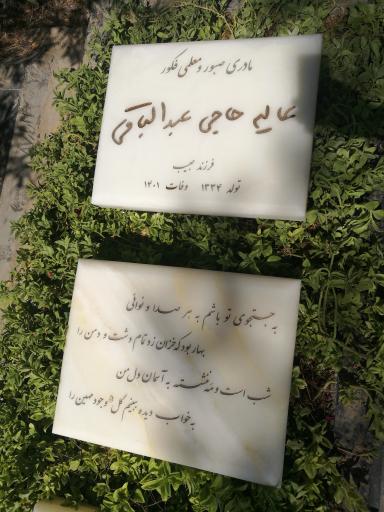 مادری صبور و معلمی فکور
عالیه حاجی عبدالباقی
فرزند حبیب
تولد ۱۳۳۴ وفات ۱۴۰۱
به جستجوی تو باشم به هر صدا و نوائی
بهار بود که خزان زد تمام دشت و دمن را
شب است و مه ننشسته به آسمان دل من
به خواب دیده ببینم گل وجود مهین را